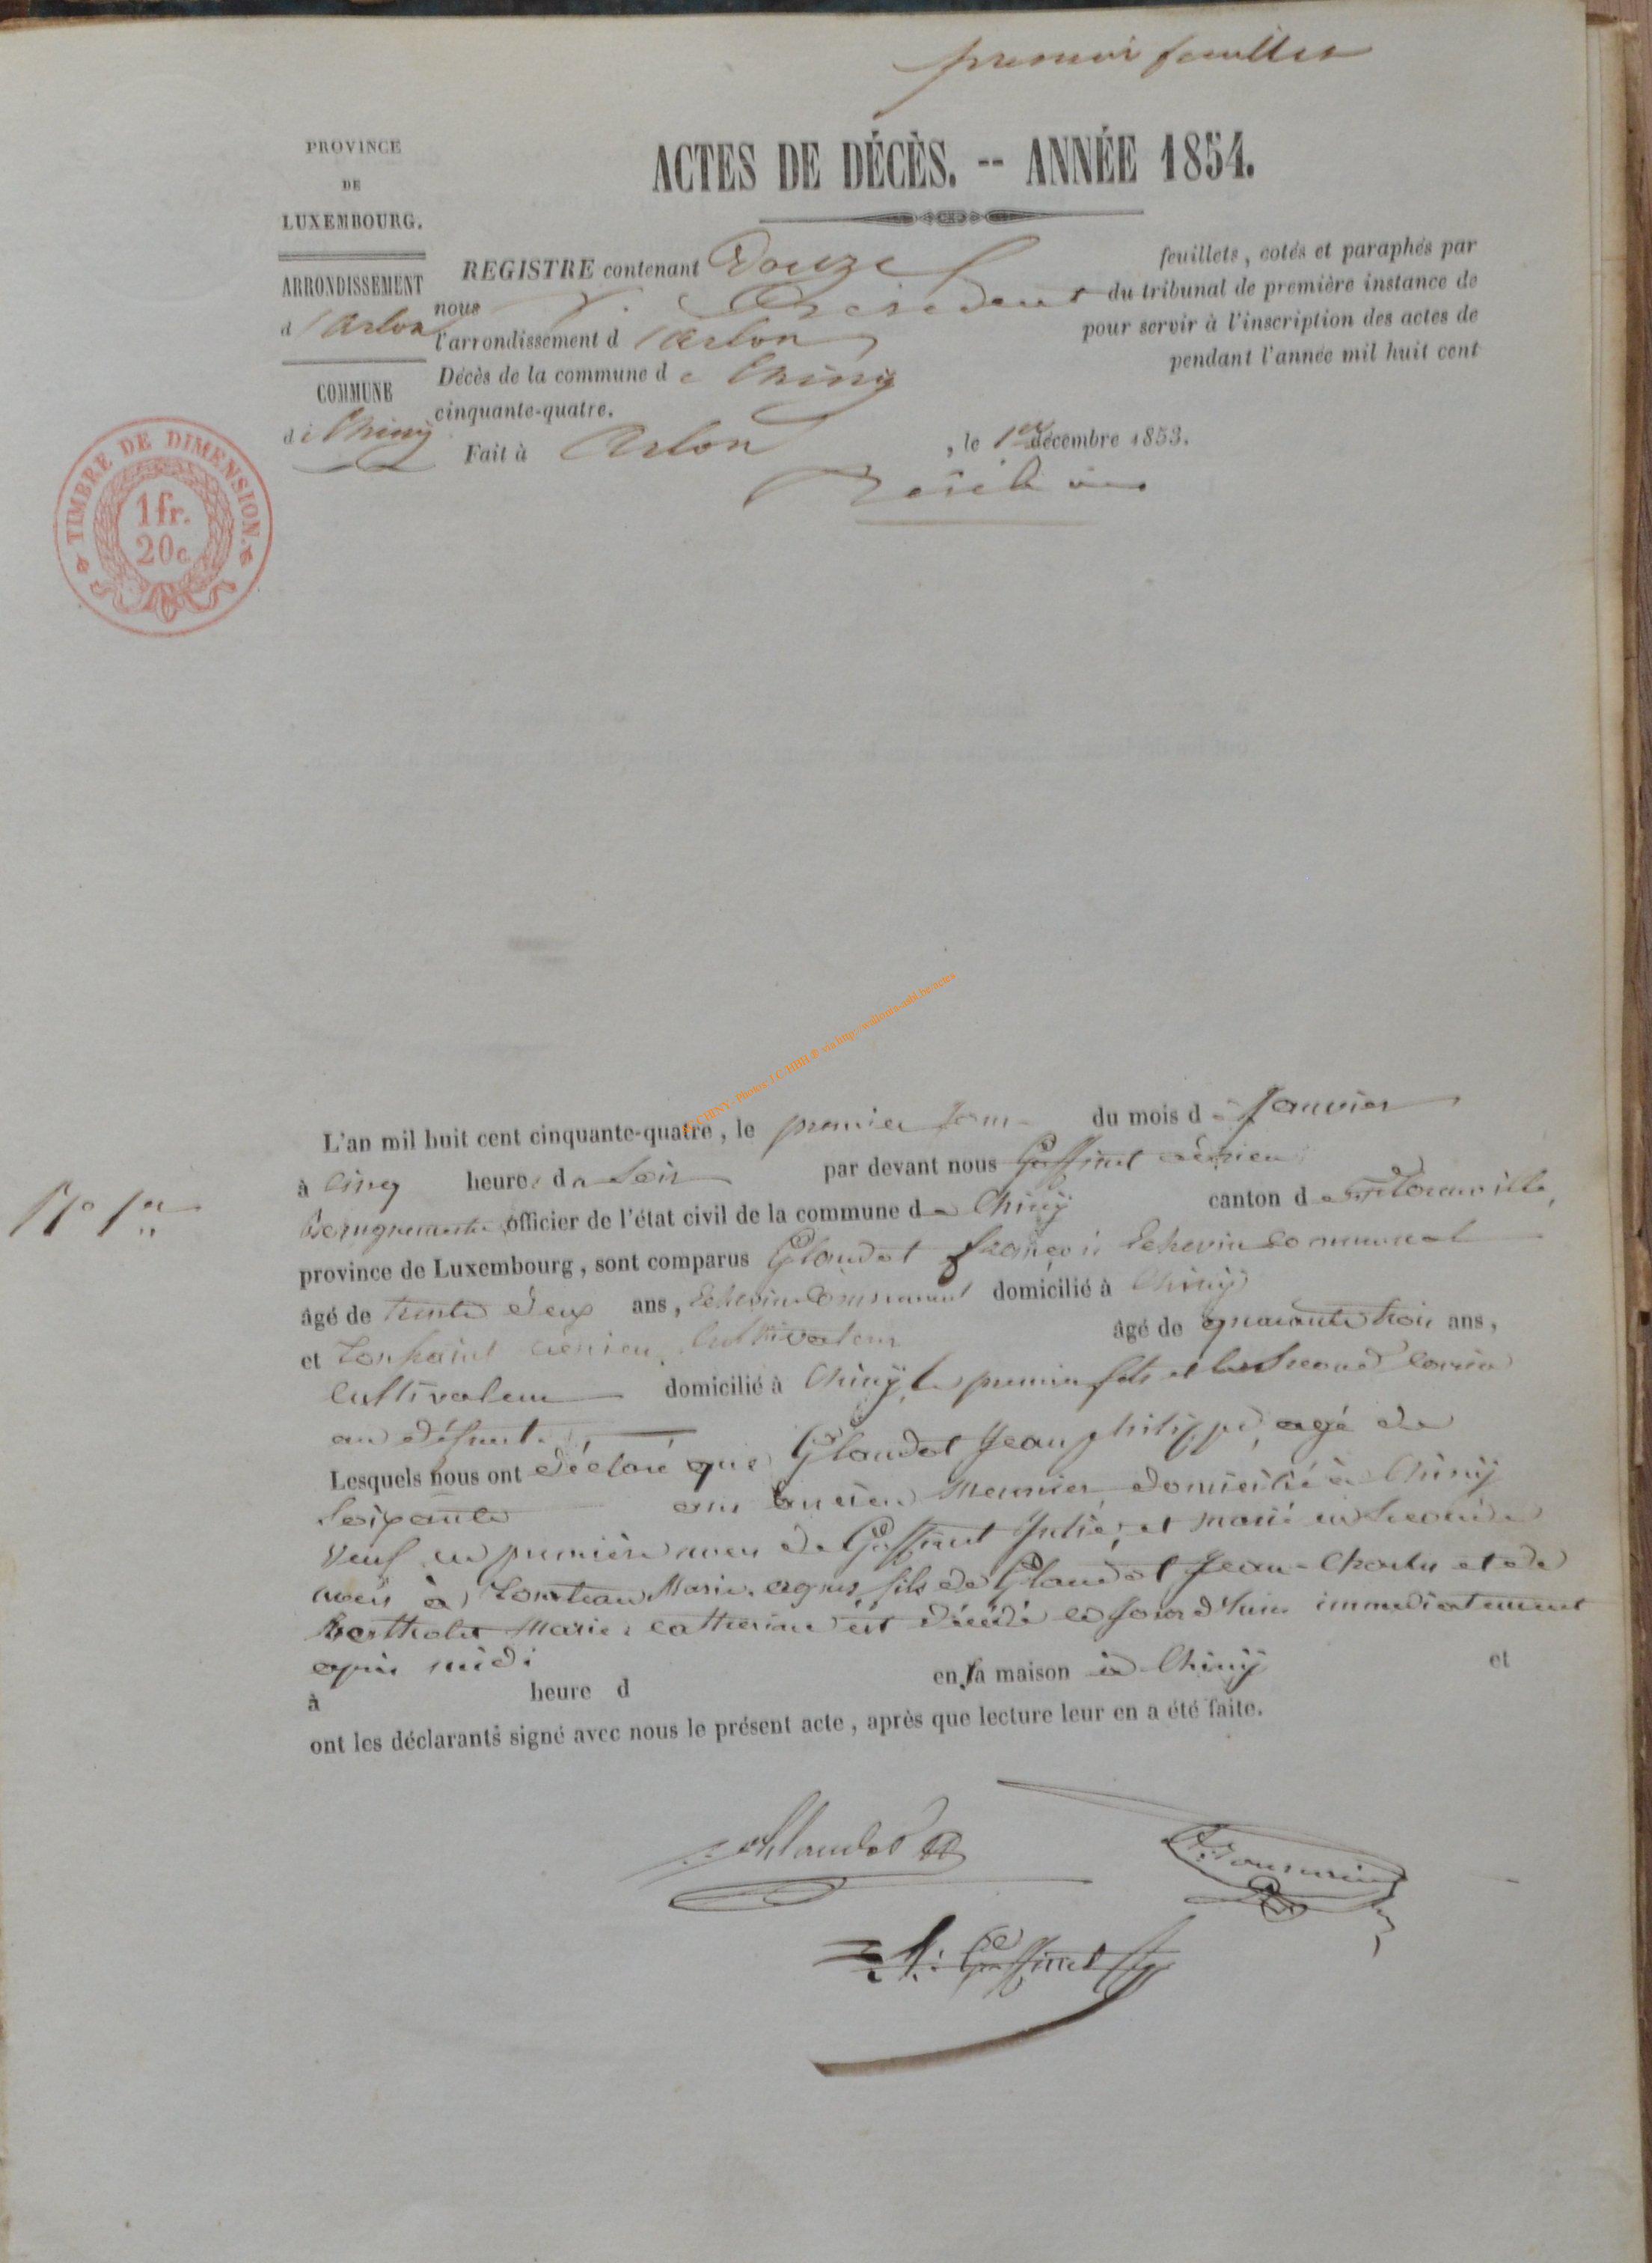 premier feuillet
PROVINCE
DE
LUXEMBOURG.
ARRONDISSEMENT
d'Arlon
COMMUNE
de Chiny
TIMBRE DE DIMENSION.
1 fr.
20 c.
ACTES DE DÉCÈS. -- ANNÉE 1854.
REGISTRE contenant Douze feuillets, cotés et paraphés par
nous Président du tribunal de première instance de
l'arrondissement d'Arlon pour servir à l'inscription des actes de
Décès de la commune de Chiny pendant l'année mil huit cent
cinquante-quatre.
Fait à Arlon, le 1er décembre 1853.
No 1er
L'an mil huit cent cinquante-quatre, le premier jour du mois de Janvier
à cinq heures du Soir par devant nous Gofinet
Bourgmestre officier de l'état civil de la commune de Chiny canton de
province de Luxembourg, sont comparus Glaudot françois Echevin communal
âgé de trente deux ans, Echevin communal domicilié à Chiny
et cultivateur âgé de quarante trois ans,
cultivateur domicilié à Chiny, le premier fils et le Second cousin
au défunt.
Lesquels nous ont déclaré que Glaudot Jean philippe, agé de
Soixante ans ancien meunier domicilié à Chiny
veuf en première de Gofinet Julie, et marié en Seconde
à Marie agnes, fils de Glaudot Jean-Charles et de
Bertholet Marie catherine est décédé aujourd'huis immediatement
après midi
à heure d en sa maison à Chiny et
ont les déclarants signé avec nous le présent acte, après que lecture leur en a été faite.
Glaudot